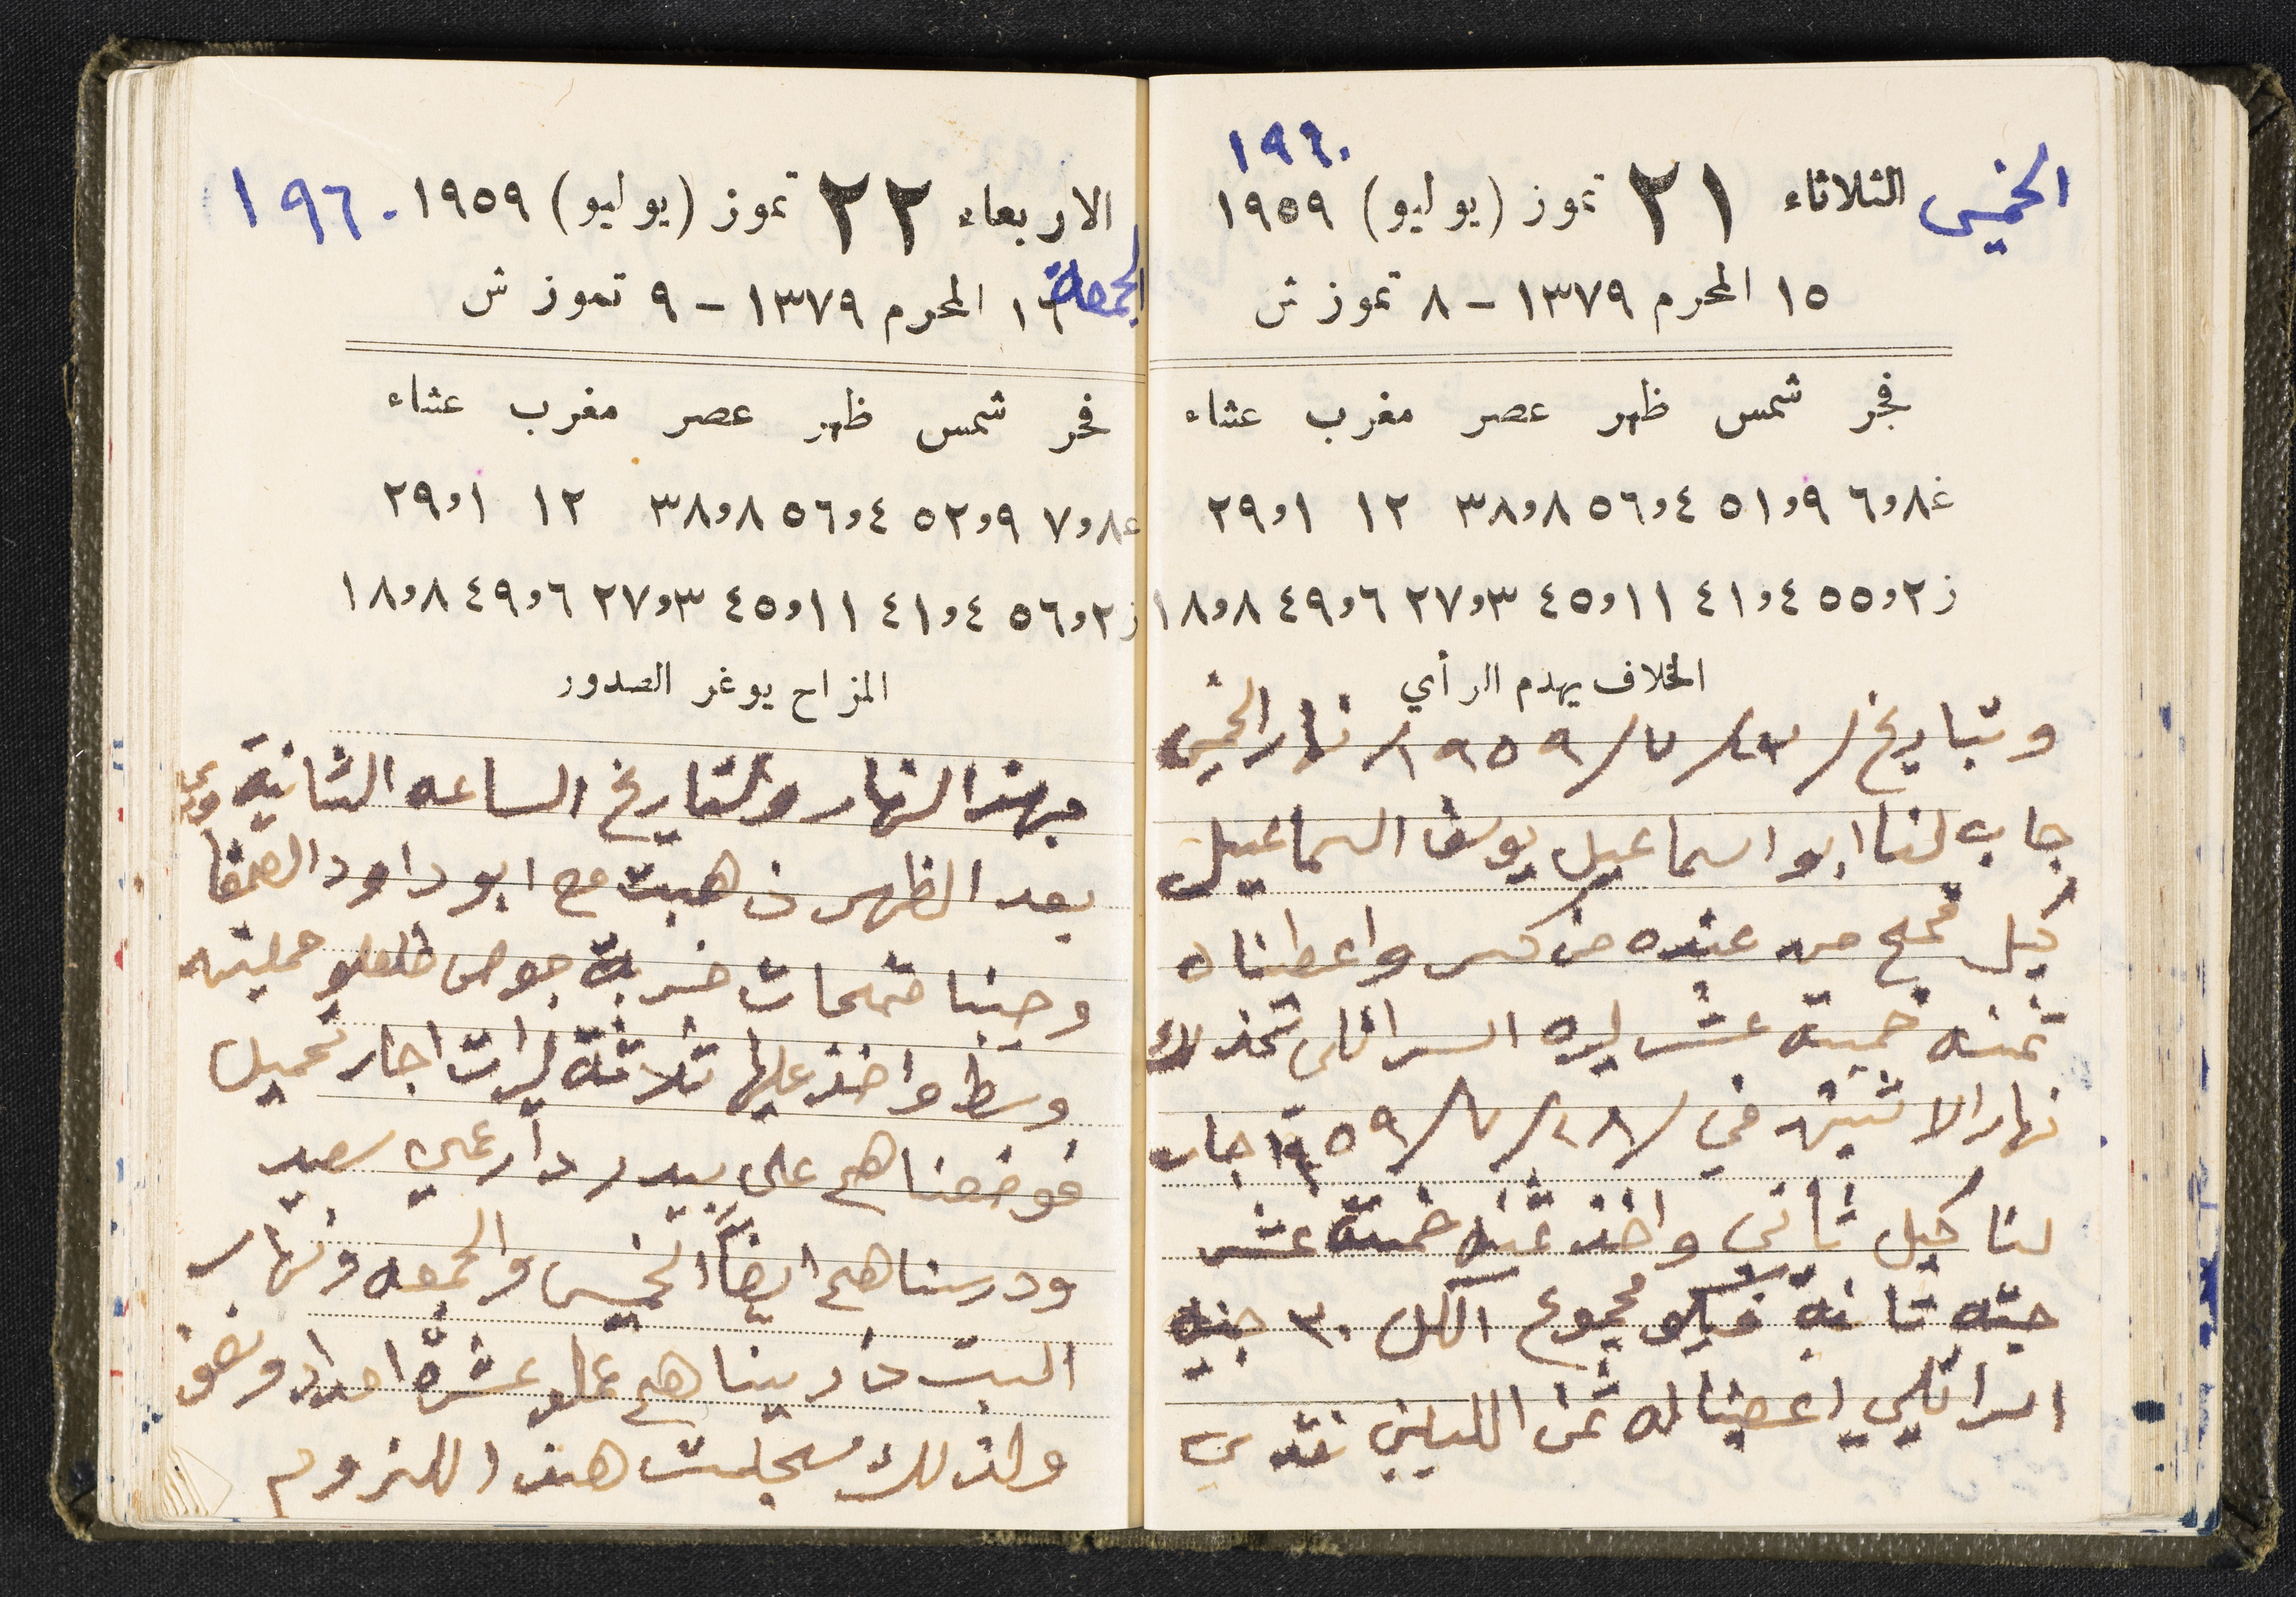 ١٩٦٠
الخميس الثلاثاء ٢١ تموز (يوليو) ١٩٥٩
١٥ المحرم ١٣٧٩ – ٨ تموز ش
فجر شمس ظهر عصر مغرب عشاء
غ ٨و٦ ٩و٥١ ٤و٥٦ ٨و٣٨ ١٢ ١و٢٩
ز ٢و٥٥ ٤و٤١ ١١و٤٥ ٣و٢٧ ٦و٤٩ ٨و١٨
الخلاف يهدم الرأي
وبتاريخ /٢٣/٧/١٩٥٩/ نهار الخميس
جاب لنا ابو اسماعيل يوسف السماعيل
كيل قمح من عنده من واعطيناه
ثمنه خمسة عشر ليره اسرائلي
نهار الاثنين في /٢٨/٧/١٩٥٩ جاب
لنا كيل ثاني واخذ ثمنه خمسة عشر
جنيه ثانية فيكو مجموع الكل ٣٠ جنيه
اسرائلي اعطيناله ثمن الكيلين نقدي
الاربعاء ٢٢ تموز (يوليو) ١٩٥٩ ١٩٦٠
الجمعة ١٦ المحرم ١٣٧٩ – ٩ تموز ش
فجر شمس ظهر عصر مغرب عشاء
غ ٨و٧ ٩و٥٢ ٤و٥٦ ٨و٣٨ ١٢ ١و٢٩
ز ٢و٥٦ ٤و٤١ ١١و٤٥ ٣و٢٧ ٦و٤٩ ٨و١٨
المزاح يوغر الصدور
بهذا النهار والتاريخ الساعه الثانية
بعد الظهر ذهبت مع ابو داود
وجبنا قمحات خربة جوص طلعو حملتين
وسط واخذ عليها ثلاثة ليرات اجار تحميل
فوضعناهم على بيدر دار عمي سعيد
ودرسناهم ايضاً الخميس والجمعه ونهار
السبت ذريناهم عملو عشرة امداد ونصف
ولذلك سجلت هذا للزوم